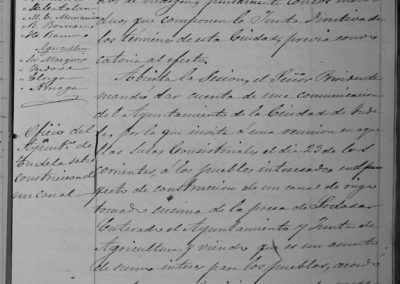 duo, que componen la Junta Directiva de
los términos de esta Ciudad, previa convo
catoria al efecto.
Abierta la sesion, el Señor Presidente
mandó dar cuenta de una comunicacion
del Ayuntamiento de la Ciudad de Tude
la, por la que invita á una reunion en aque
llas Salas Consistoriales el dia 23 de los
corrientes, á los pueblos interesados en el pro
yecto de construccion de un canal de riego
tomado encima de la presa de Lodosa.
Enterado el Ayuntamiento y Junta de
Agricultura y viendo que es un asunto
de sumo interes para los pueblos, acordó
Agricultura
Sr. Marques
Oficio del
Ayunto. de
Tudela sobre
construccion de
un canal